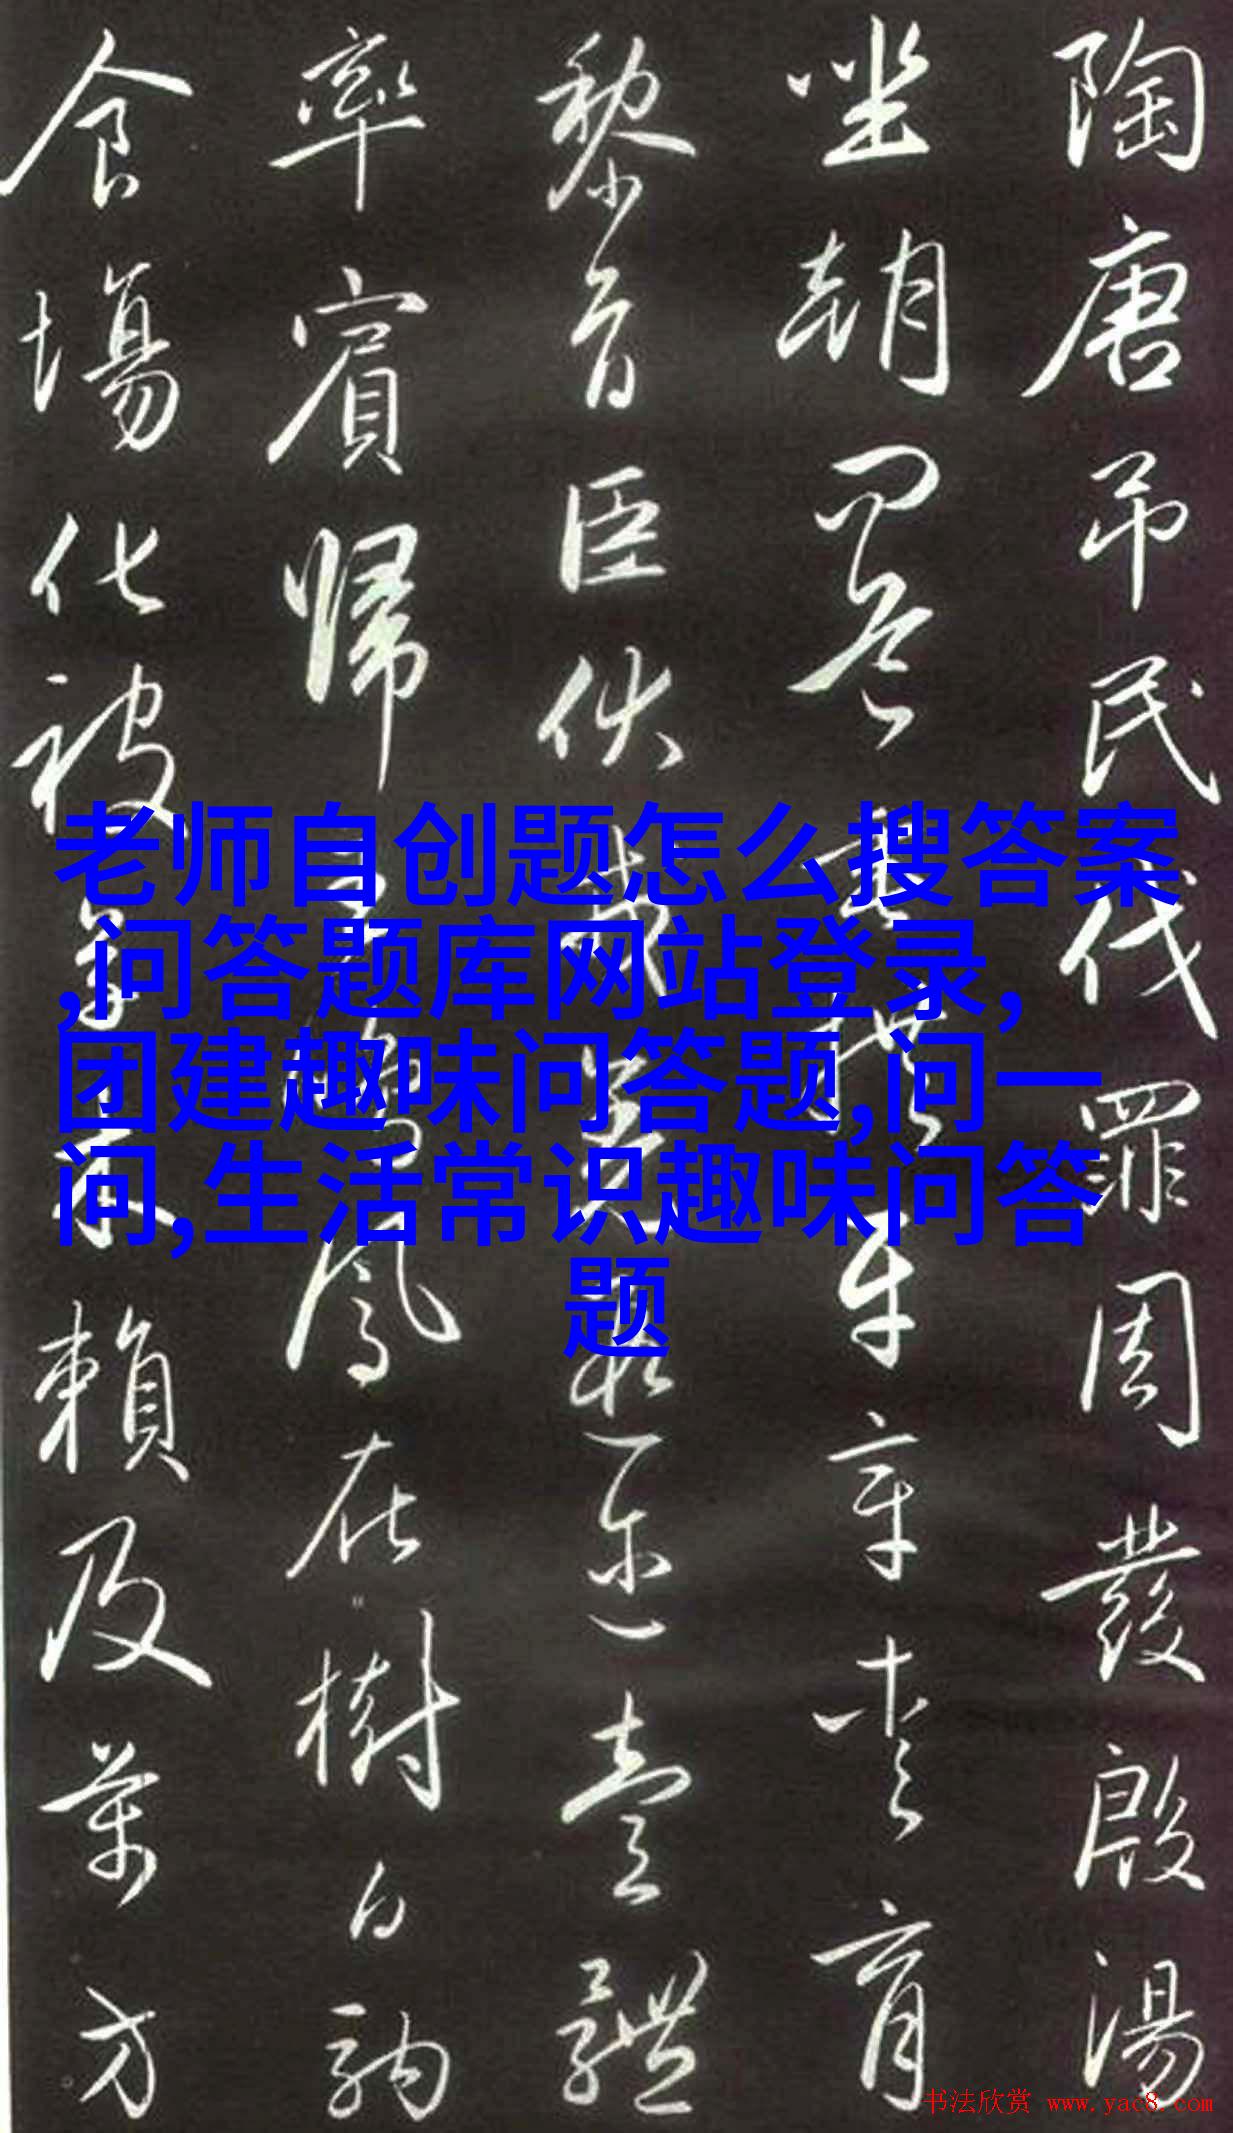 陶唐吊民伐罪周發殷湯
坐朝問道垂拱平章愛育
黎首臣伏戎羌遐邇壹體
率賓歸王鳴鳳在樹白駒
食場化被草木賴及萬方
老师自创题怎么搜答案
,问答题库网站登录,
团建趣味问答题,问一
问,生活常识趣味问答
题
书法欣赏 www.yac8.com